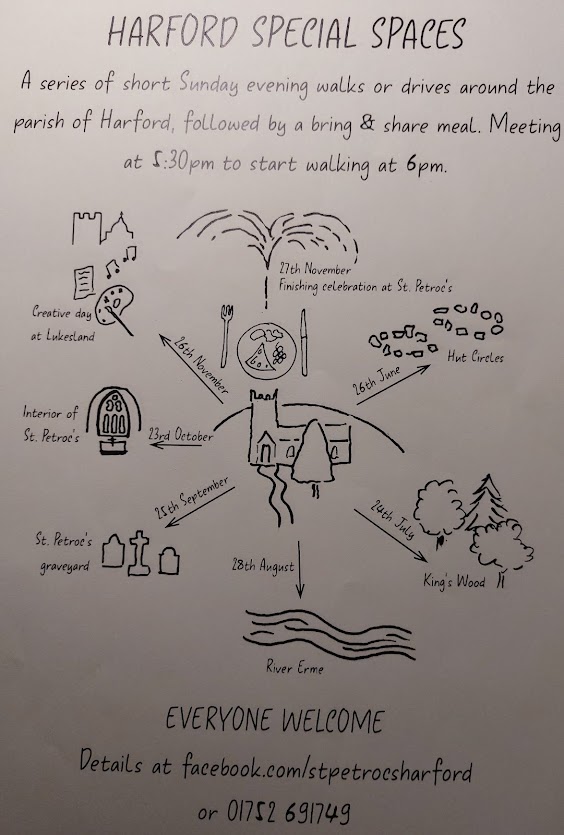 HARFORD SPECIAL SPACES
A series of short Sunday evening walks or drives around the
parish of Harford, followed by a bring & share meal. Meeting
at 5:30pm to start walking at 6pm.
27th November
Finishing celebration at St. Petroc's
Creative day
at Lukesland
26th November
26th June
Hut Circles
Interior of
St. Petroc's
23rd October
25th September
St. Petroc's
graveyard
24th July
King's Wood
28th August
River Erme
EVERYONE WELCOME
Details at facebook.com/stpetrocsharford
or 01752 691749